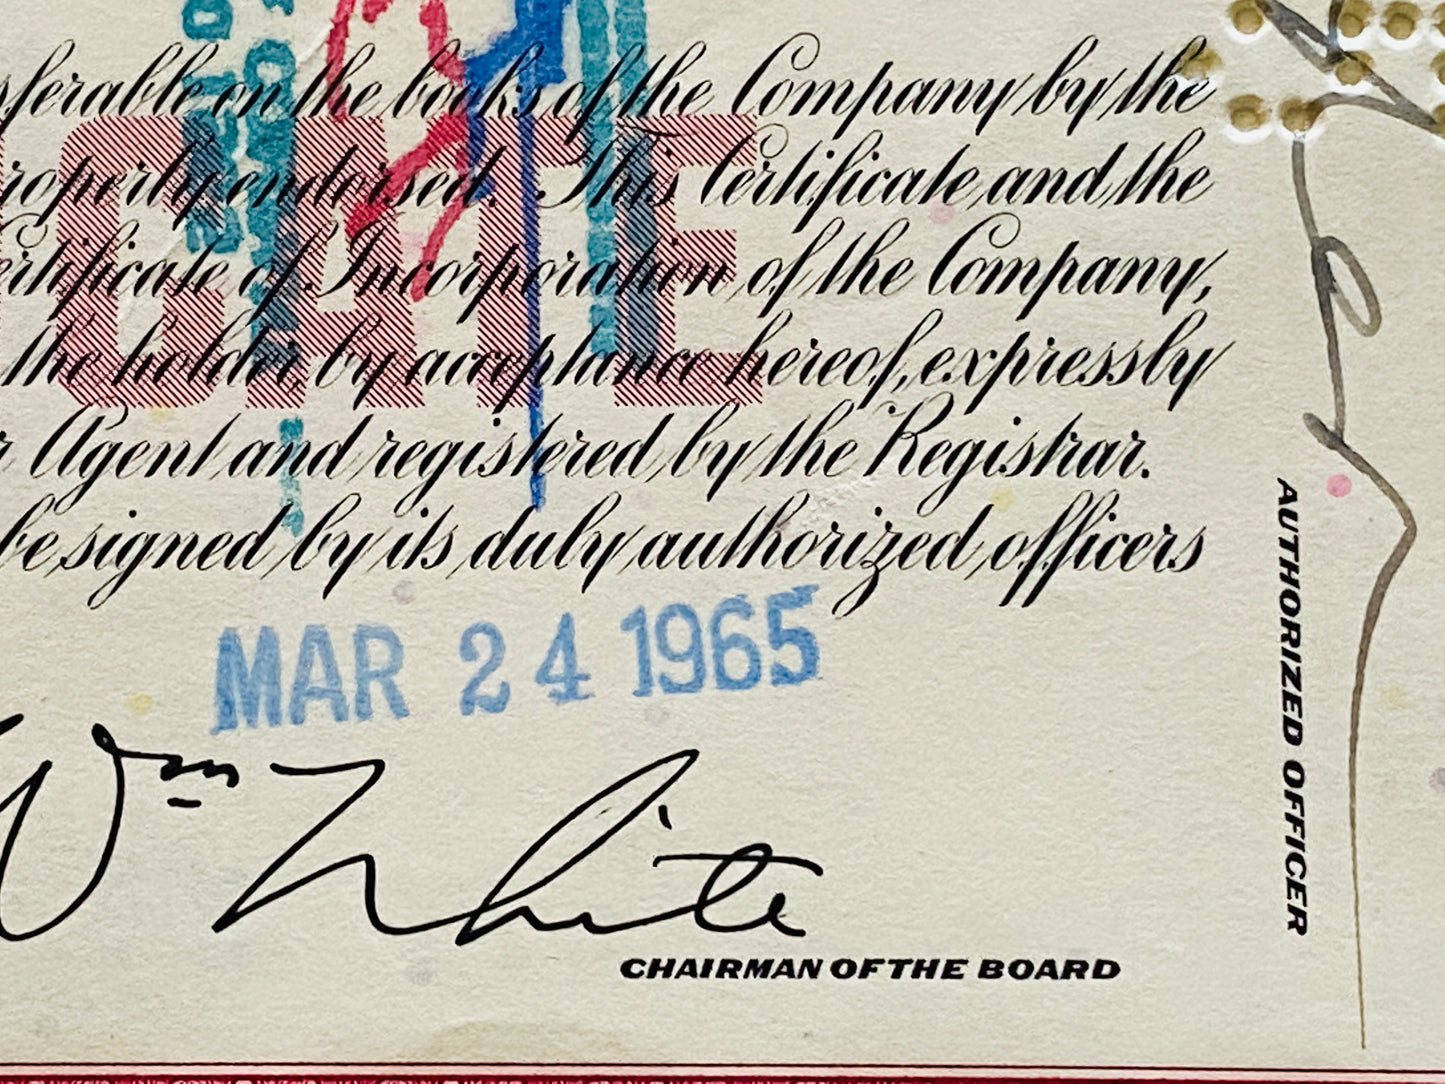 sferable on the books of the Company by the
roperly endorsed. This Certificate and the
ertificate of Incorporation of the Company,
the holder, by acceptance hereof, expressly
r Agent and registered by the Registrar.
be signed by its duly authorized officers
CATE
MAR 24 1965
Wm White
CHAIRMAN OF THE BOARD
AUTHORIZED OFFICER